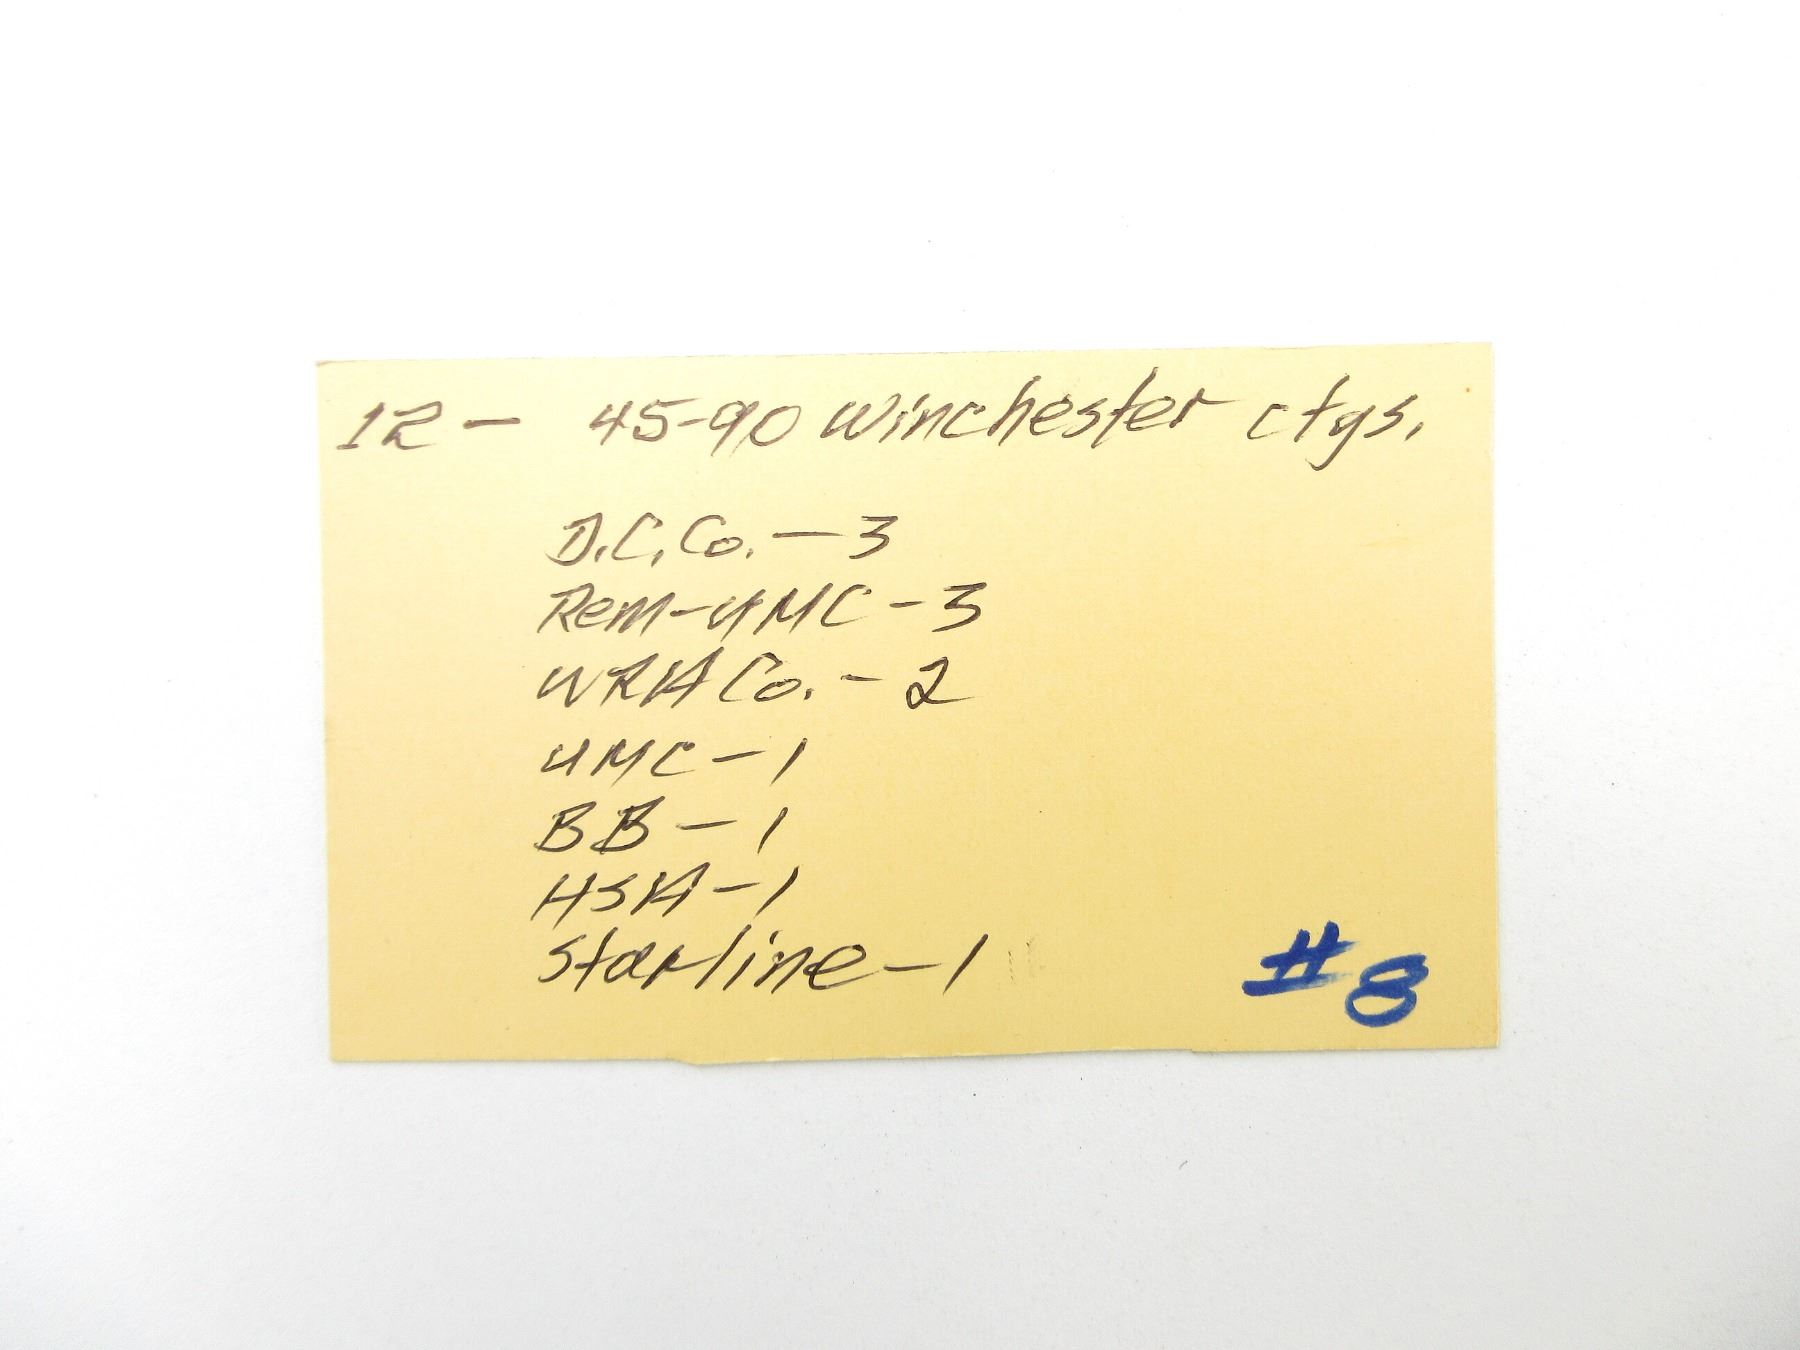 12 - 45-90 Winchester ctgs.
D.C.Co. - 3
Rem-UMC - 3
WRA Co. - 2
UMC - 1
BB - 1
HSA - 1
Starline - 1
#8